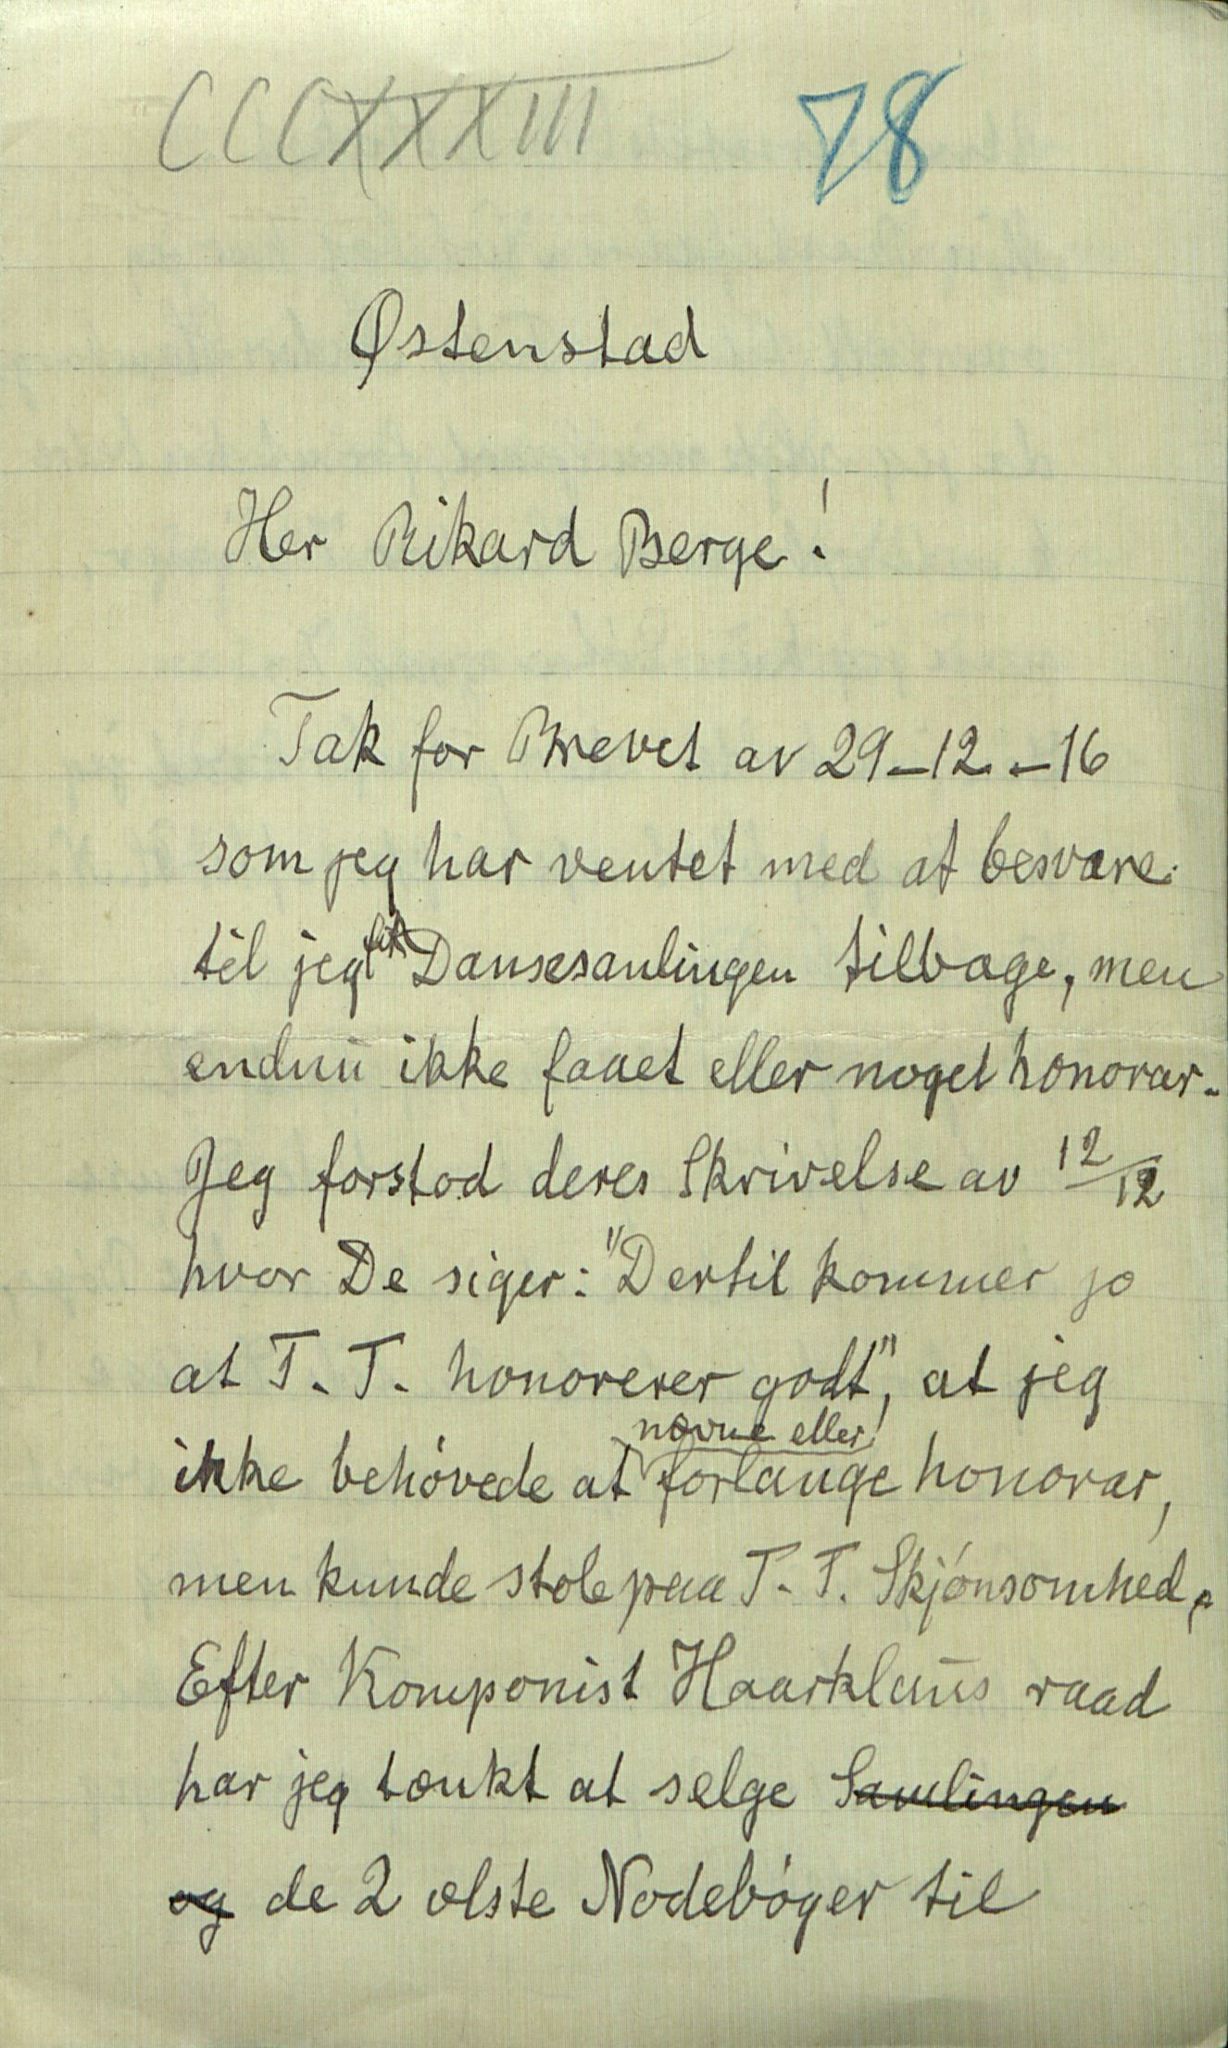 CCCXXXIII 78
Østenstad
Her Rikard Berge!
Tak for Brevet av 29-12-16
som jeg har ventet med at besvare
til jeg fik Dansesamlingen tilbage, men
endnu ikke faaet eller noget honorar.
Jeg forstod deres Skrivelse av 12/12
hvor De siger: "Dertil kommer jo
at T. T. honorerer godt", at jeg
nævne eller
ikke behøvede at forlange honorar,
men kunde stole paa T. T. Skjønsomhed.
Efter Komponist Haarklaus raad
har jeg tænkt at selge Samlingen
og de 2 ælste Nodebøger til